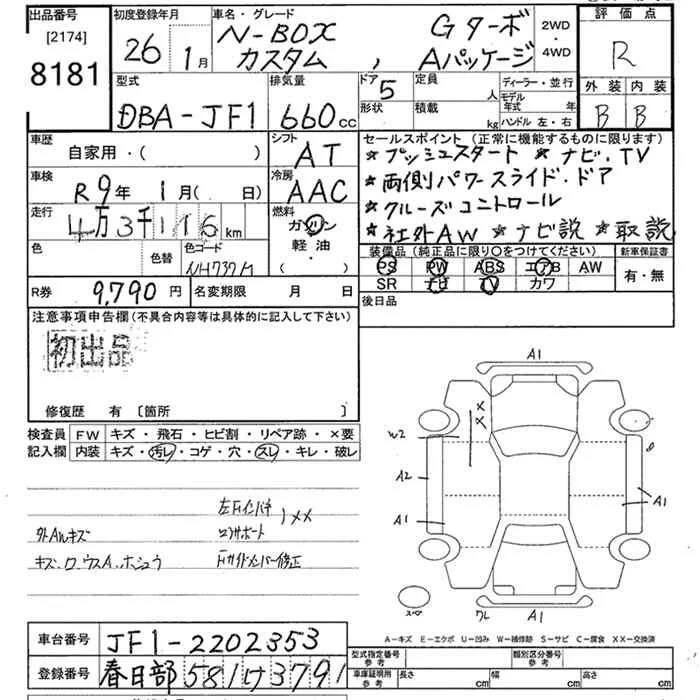 出品番号
[2174]
8181
初度登録年月
26 1月
車名・グレード
N-BOX カスタム , Gターボ Aパッケージ
2WD・4WD
評価点
R
外装 内装
B B
型式
DBA-JF1
排気量
660cc
ドア 5
形状
定員 人
積載 kg
ディーラー・並行
モデル年式 年
ハンドル 左・右
車歴
自家用・( )
シフト
AT
車検
R9年 1月( 日)
冷房
AAC
走行
4万3千116km
燃料
ガソリン
軽油・
( )
色
色替
色コード
NH737M
セールスポイント (正常に機能するものに限ります)
★プッシュスタート ★ナビ・TV
★両側パワースライド・ドア
★クルーズコントロール
★社外AW ★ナビ説 ★取説
装備品(純正品に限り○をつけてください)
PS PW ABS エアB AW
SR ナビ TV カワ
新車保証書
有・無
後日品
R券 9,790円
名変期限 月 日
注意事項申告欄(不具合内容等は具体的に記入して下さい)
初出品
修復歴 有 〔箇所 〕
検査員記入欄
FW キズ・飛石・ヒビ割・リペア跡・×要
内装 キズ・汚レ・コゲ・穴・スレ・キレ・破レ
外AWキズ
キズ.
サポート
修正
A1
××
W2
A2
A1
A1
スペ
ワレ
A1
A-キズ E-エクボ U-凹み W-補修跡 S-サビ C-腐食 XX-交換済
車台番号 JF1-2202353
登録番号 春日部581け3791
型式指定番号 参考
類別区分番号 参考
車庫証明用 参考 長さ cm 幅 cm 高さ cm